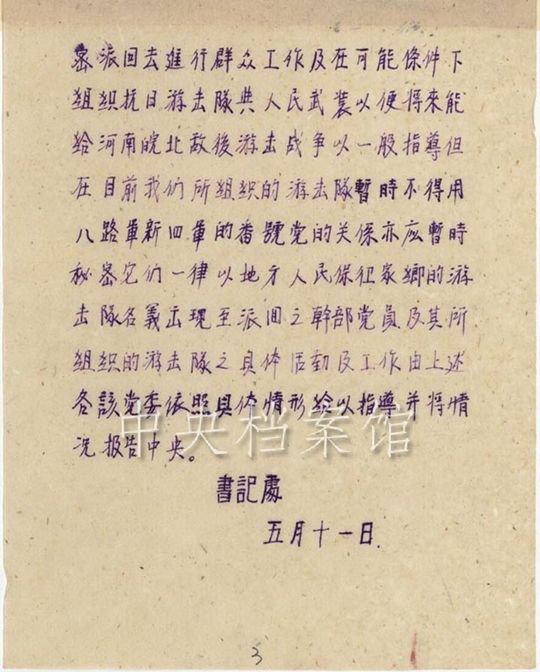 密派回去進行群众工作及在可能條件下
組织抗日游击隊與人民武裝以便將來能
給河南皖北敌後游击战争以一般指導但
在目前我们所组織的游击隊暫時不得用
八路軍新四軍的番號党的关係亦應暫時
秘密它们一律以地方人民保衛家鄉的游
击隊名義出現至派回之幹部党员及其所
组織的游击隊之具体活動及工作由上述
各該党委依照具体情形给以指導并将情
况报告中央。
書記處
五月十一日.
中央档案馆
3